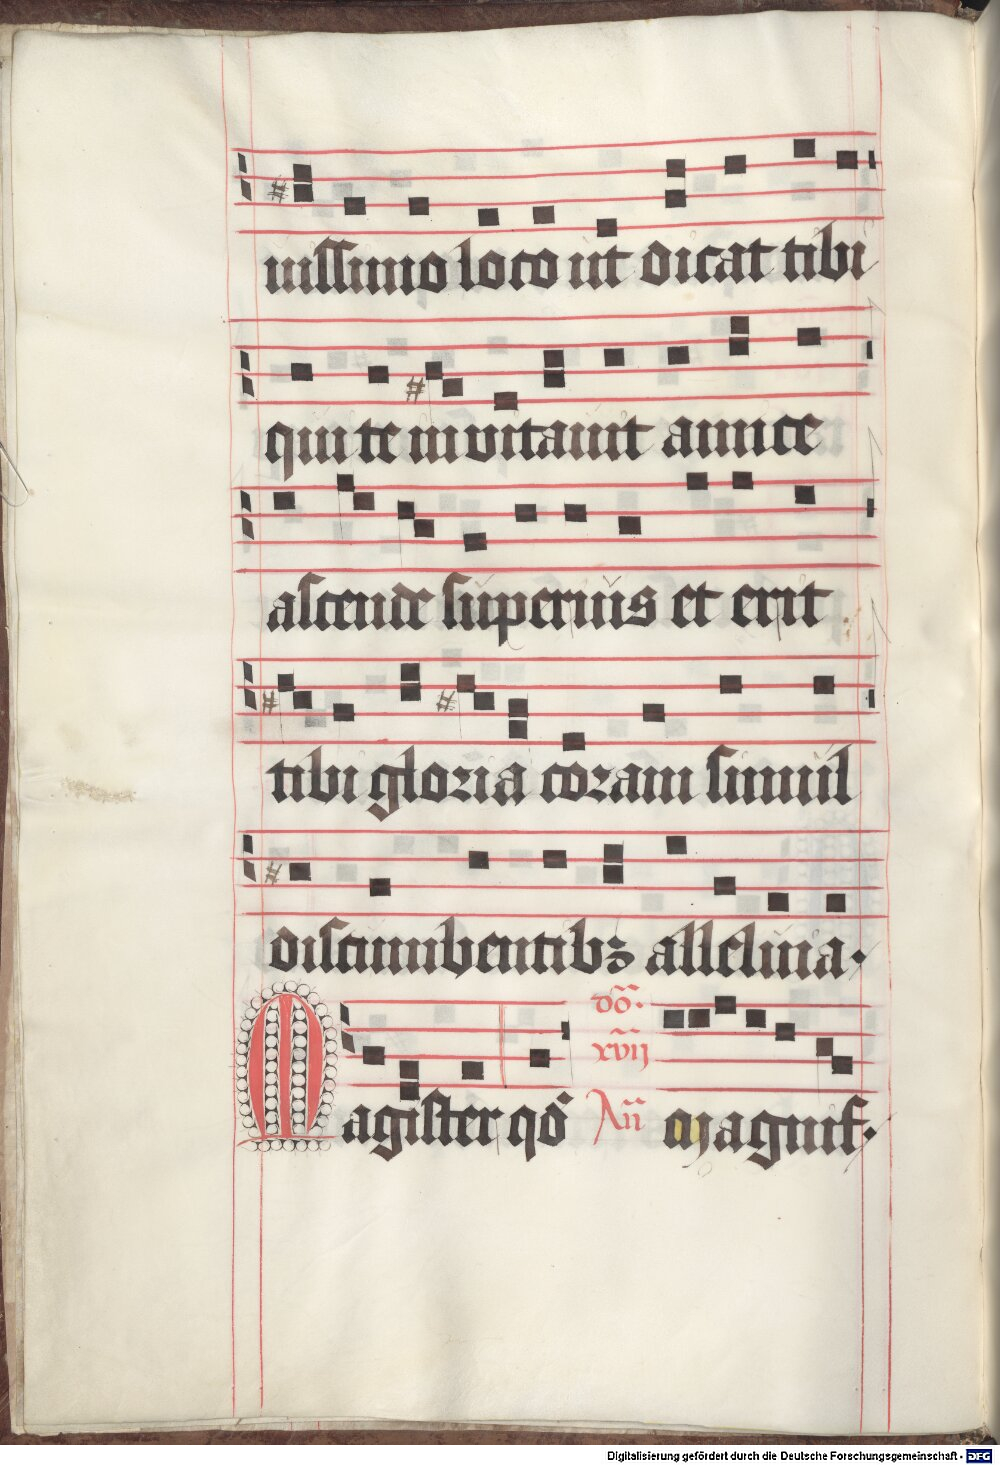 uissimo loco ut dicat tibi
qui te inuitauit amice
ascende superius et erit
tibi gloria coram simul
discumbentibꝫ alleluia.
Magister qō dō. xvij Añ Magnif.
Digitalisierung gefördert durch die Deutsche Forschungsgemeinschaft - DFG